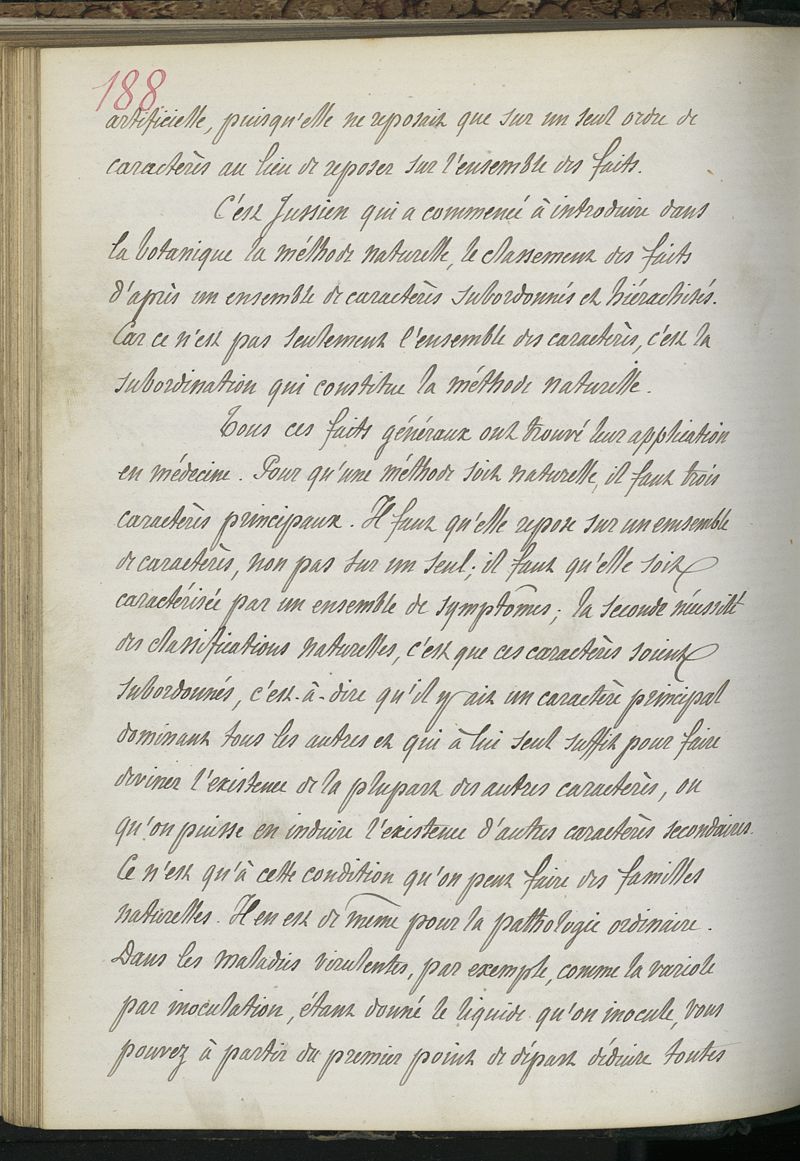 188
artificielle, puisqu'elle ne reposait que sur un seul ordre de
caractères au lieu de reposer sur l'ensemble des faits.
C'est Jussieu qui a commencé à introduire dans
la botanique la méthode naturelle, le classement des faits
d'après un ensemble de caractères subordonnés et hiérachisés.
Car ce n'est pas seulement l'ensemble des caractères, c'est la
subordination qui constitue la méthode naturelle.
Tous ces faits généraux ont trouvé leur application
en médecine. Pour qu'une méthode soit naturelle, il faut trois
caractères principaux. Il faut qu'elle repose sur un emsemble
de caractères, non pas sur un seul; il faut qu'elle soit
caractérisée par un ensemble de symptômes; la seconde nécessité
des classifications naturelles, c'est que ces caractères soient
subordonnés, c'est-à-dire qu'il y ait un caractère principal
dominant tous les autres et qui à lui seul suffit pour faire
deviner l'existence de la plupart des autres caractères, ou
qu'on puisse en induire l'existence d'autres caractères secondaires.
Ce n'est qu'à cette condition qu'on peut faire des familles
naturelles. Il en est de même pour la pathologie ordinaire.
Dans les maladies virulentes, par exemple, comme la variole
par inoculation, étant donné le liquide qu'on inocule, vous
pouvez à partir du premier point de départ déduire toutes